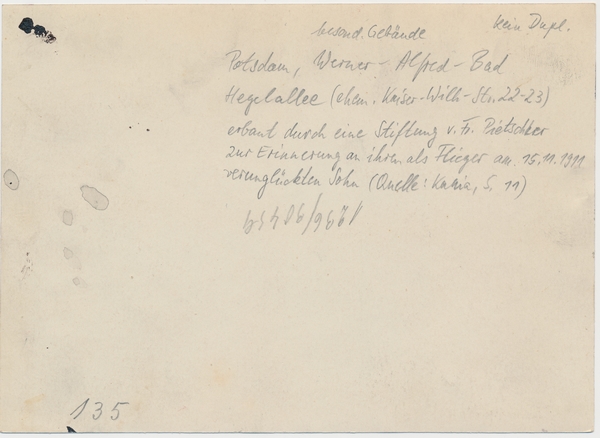 besond. Gebäude
Kein Dupl.
Potsdam, Werner-Alfred-Bad
Hegelallee (ehem. Kaiser-Wilh-Str. 22-23)
erbaut durch eine Stiftung v. Fr. Pietschker
zur Erinnerung an ihren als Flieger am 15.11.1911
verunglückten Sohn (Quelle: Kania, S. 11)
135